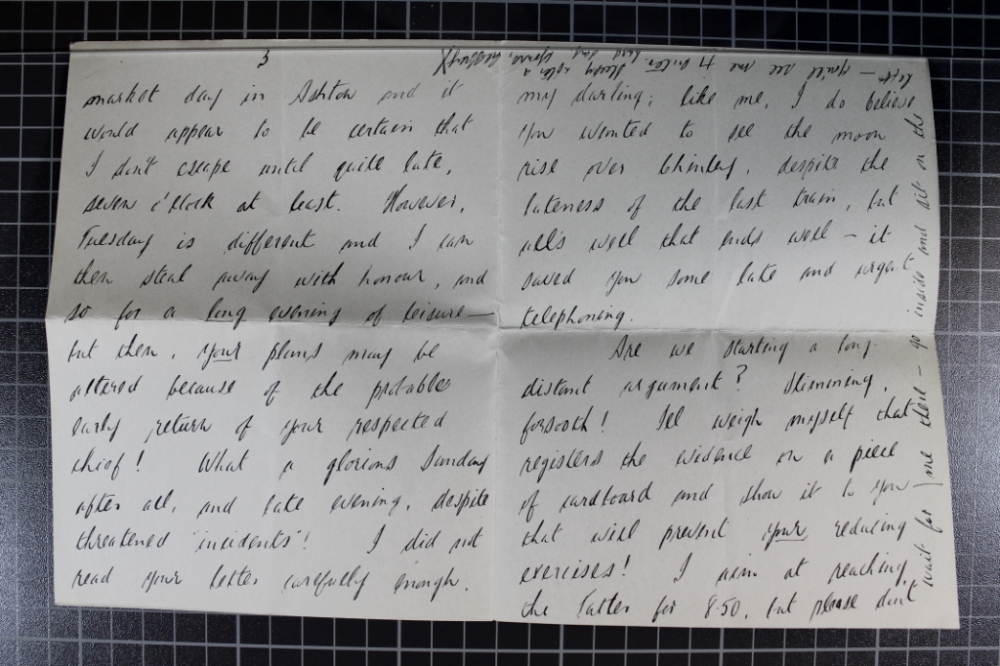 3
market day in Ashton and it
would appear to be certain that
I don't escape until quite late,
seven o'clock at least. However,
Tuesday is different and I can
then steal away with honour, and
so for a long evening of leisure —
but then, your plans may be
altered because of the probable
early return of your respected
chief! What a glorious Sunday
after all, and late evening, despite
threatened "incidents"! I did not
read your letter carefully enough,
my darling; like me, I do believe
you wanted to see the moon
rise over Chinley, despite the
lateness of the last train, but
all's well that ends well — it
saved you some late and urgent
telephoning.
Are we starting a long-
distant argument? Slimming,
forsooth! I'll weigh myself that
registers the evidence on a piece
of cardboard and show it to you —
that will prevent your reducing
exercises! I aim at reaching
the Tatler for 8.50, but please don't
wait for me there — go inside and sit on the
left — you'll see me